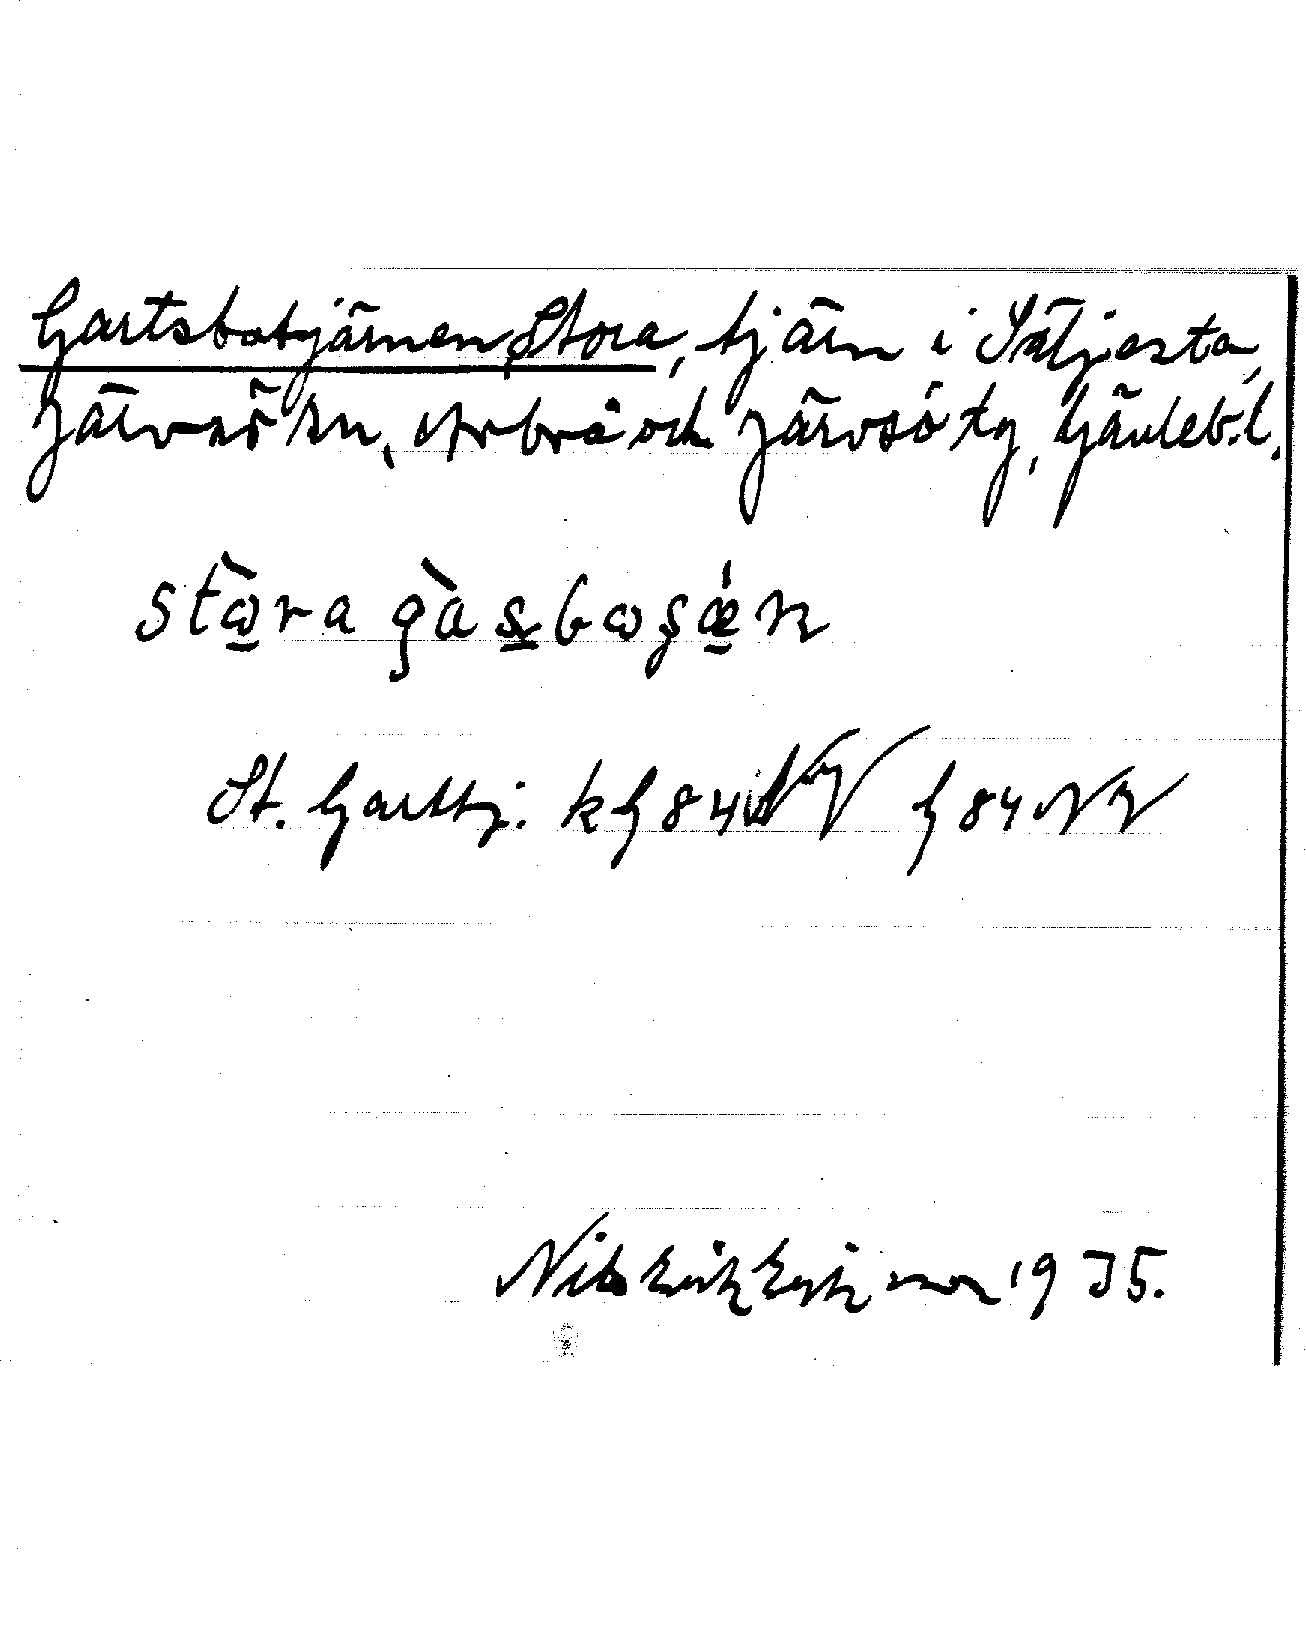 Gartsbotjärnen, Stora, tjärn i Säljesta,
Järvsö sn, Arbrå och Järvsö tg, Gävleb.l.
stὼ̲ra gàs̲bωʂǽ̲n
St. Garttj. k G 84 NV G 84 NV
Nils Erik Eriksson 1935.